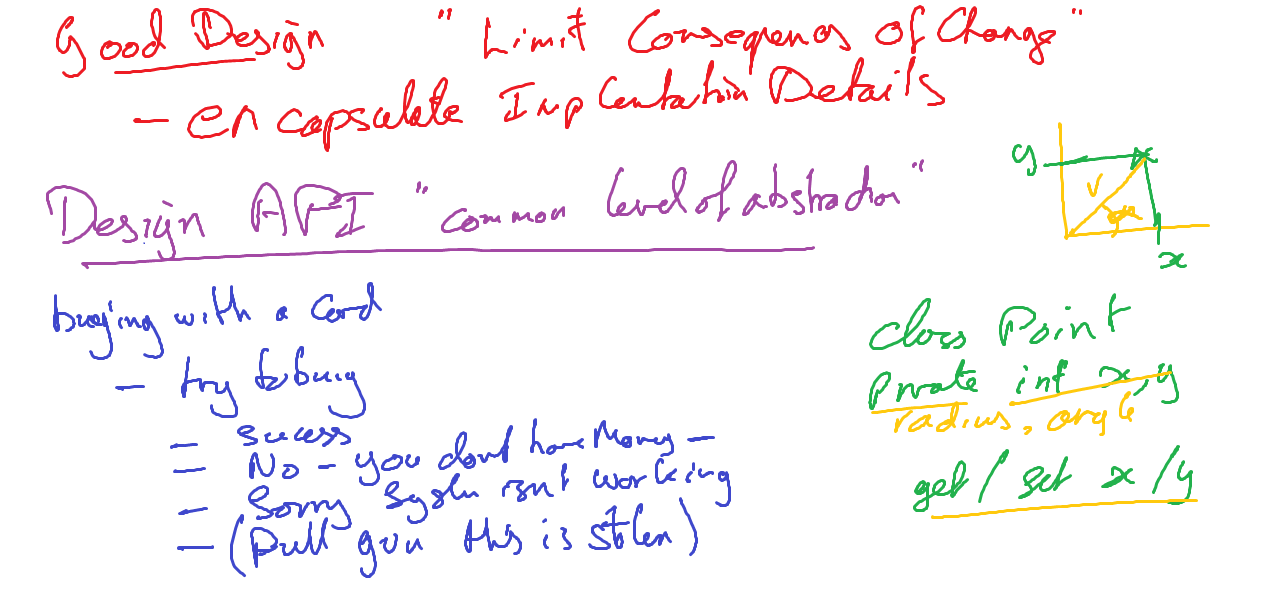 Good Design "Limit Consequences of Change"
- encapsulate Implentation Details
Design API "common level of abstraction"
y
r
x
buying with a Card
- try to buy
- sucess
- No - you dont have Money -
- Sorry System isnt working
- (Pull gun this is stolen)
class Point
Private int x,y
radius, angle
get / set x / y